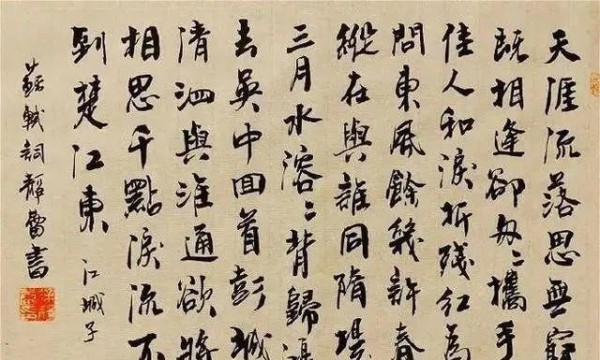 天涯流落思無窮
既相逢卻匆匆攜手
佳人和淚折殘紅為
問東風餘幾許春
縱在與誰同隋堤
三月水溶溶背歸鴻
去吳中回首彭城
清泗與淮通欲將
相思千點淚流不
到楚江東 江城子
蘇軾詞 書